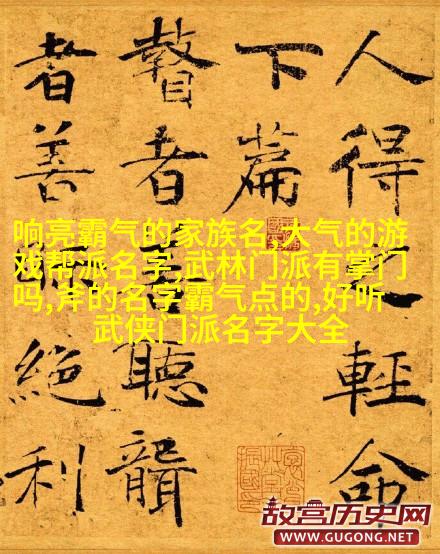 人得之輕命
下篇
瞽者善聽聾
者善絕利
响亮霸气的家族名,大气的游
戏帮派名字,武林门派有掌门
吗,斧的名字霸气点的,好听
武侠门派名字大全
故宫历史网
WWW.GUGONG.NET